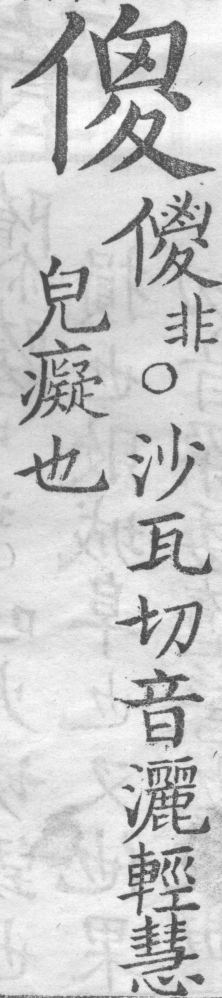 傻
非○沙瓦切音灑輕慧
皃癡也